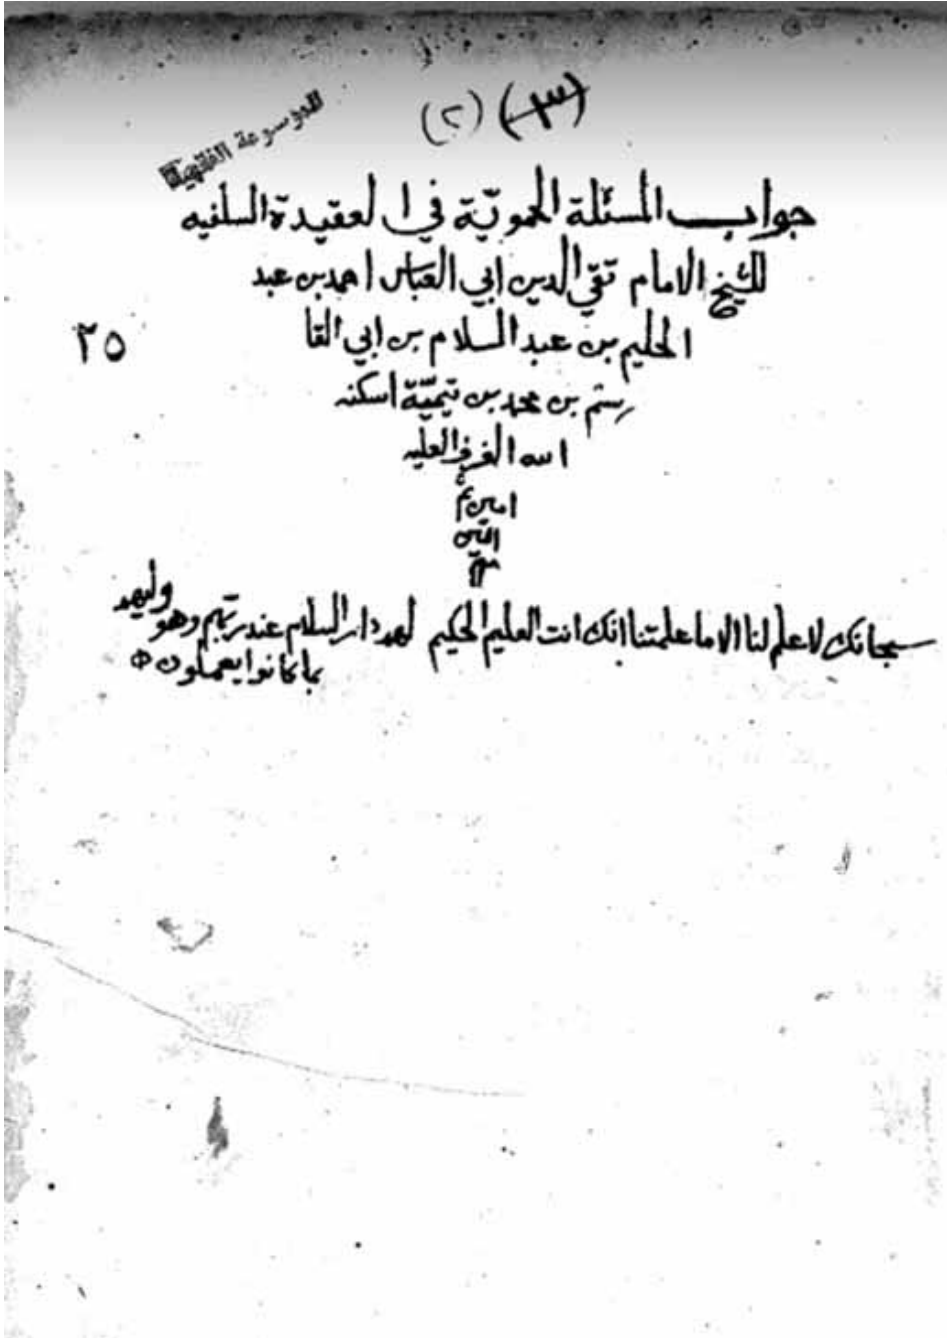 (٣) (٢)
الموسوعة الفقهية
جواب المسئلة الحموية في العقيدة السلفيه
للشيخ الامام تقي الدين ابي العباس احمد بن عبد
الحليم بن عبد السلام بن ابي القا
٢٥
سم بن محمد بن تيميّة اسكنه
الله الغرف العليه
امين
وليهم
سبحانك لا علم لنا الا ما علمتنا انك انت العليم الحكيم لهم دار السلام عند ربهم وهو
بما كانوا يعملون